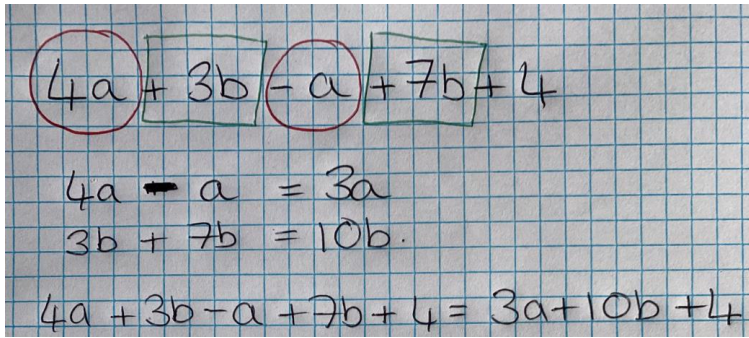 4a + 3b - a + 7b + 4
4a - a = 3a
3b + 7b = 10b.
4a + 3b - a + 7b + 4 = 3a + 10b + 4